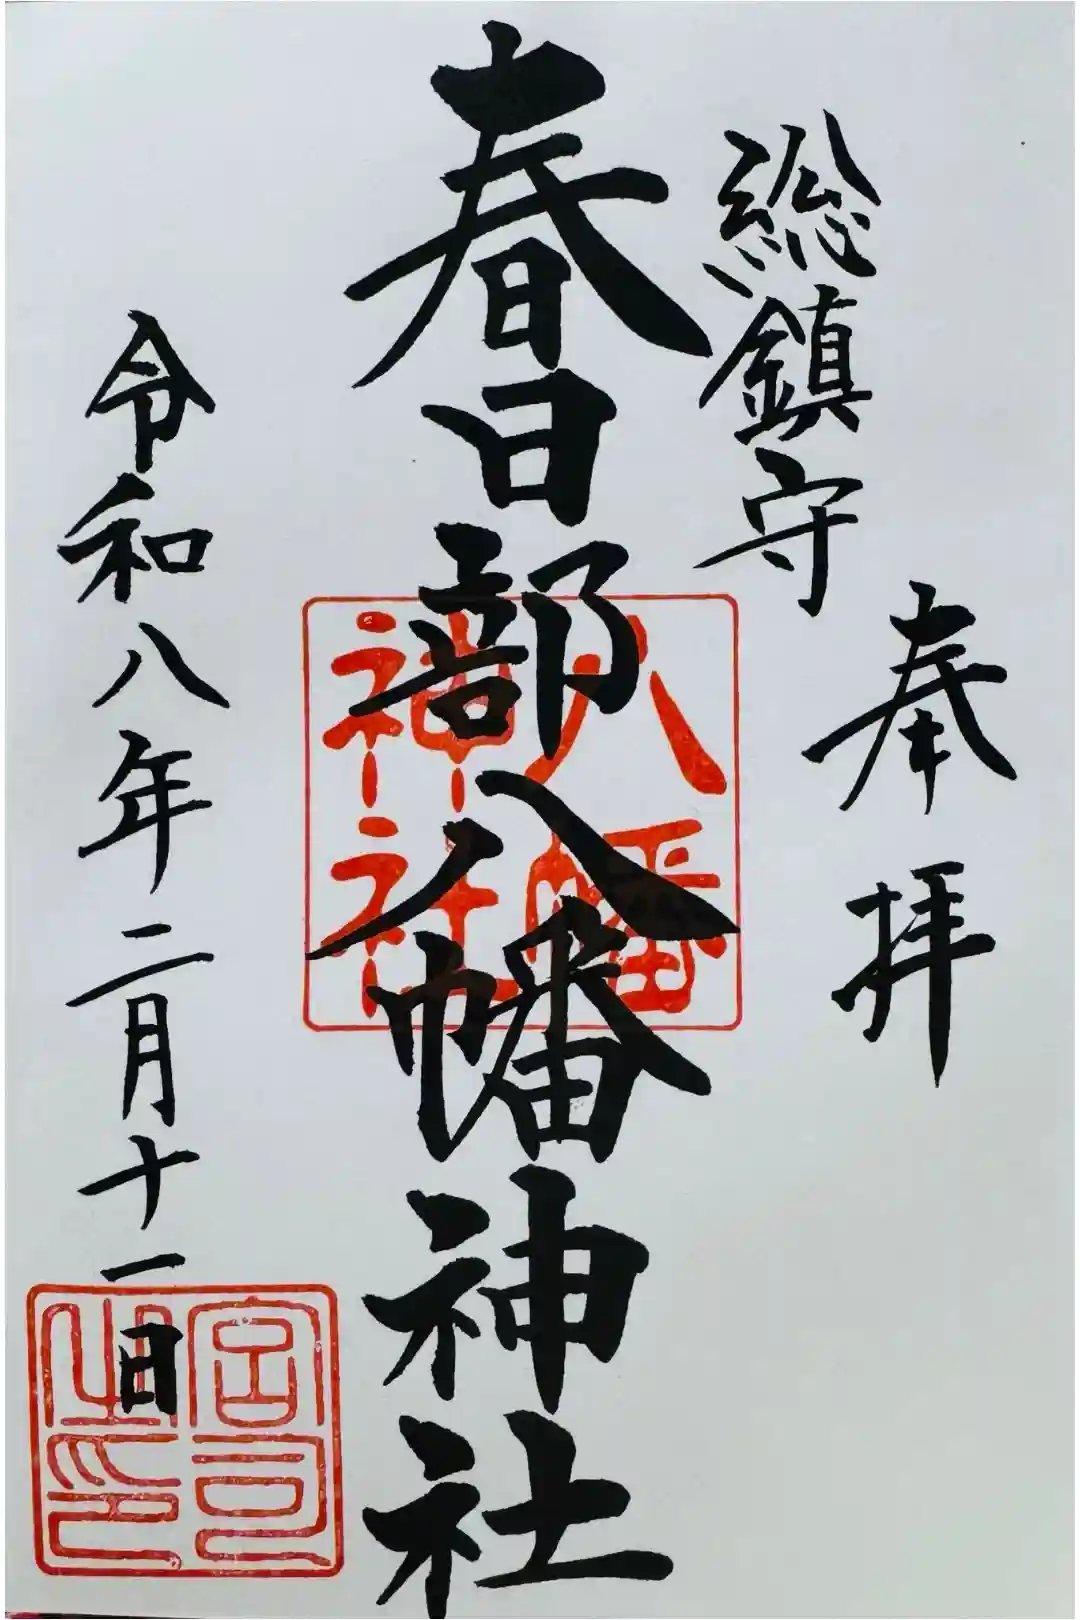 奉拝
総鎮守
春日部八幡神社
八幡神社
令和八年二月十一日
宮司之印